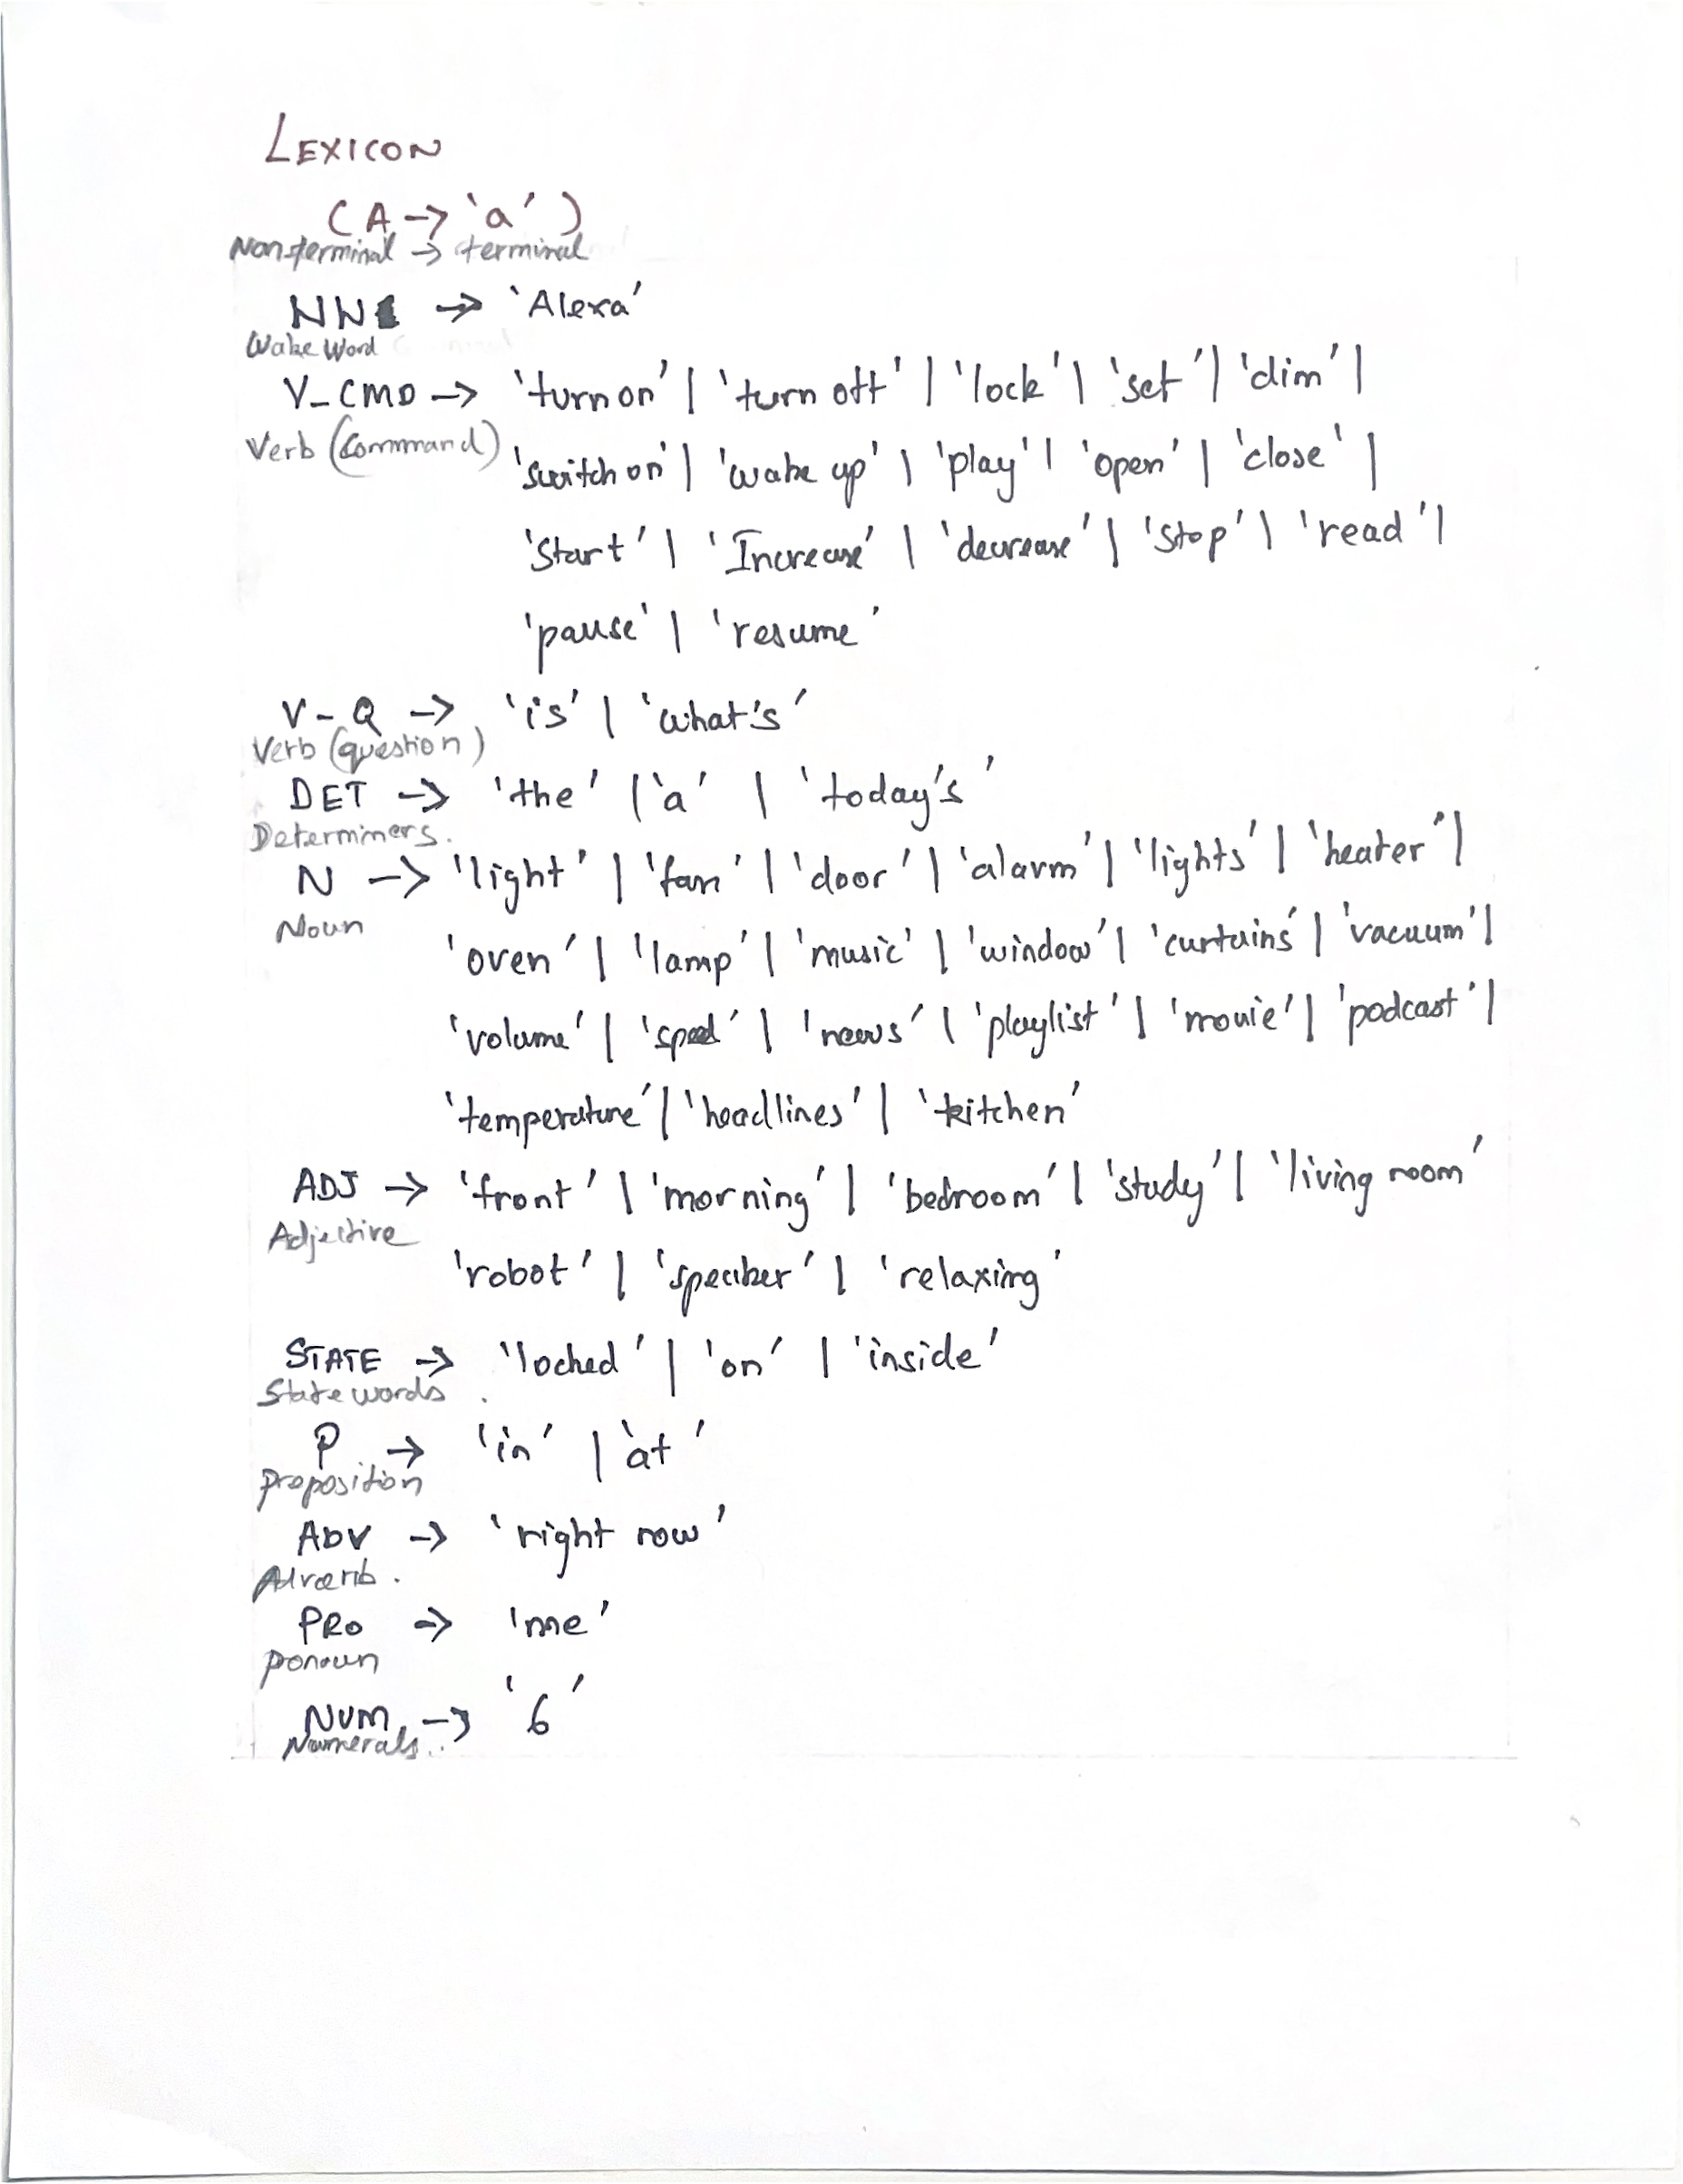 LEXICON
(A -> 'a')
Nonterminal -> terminal
NN -> 'Alexa'
Wake Word
V_CMD -> 'turn on' | 'turn off' | 'lock' | 'set' | 'dim' |
Verb (Command)
'switch on' | 'wake up' | 'play' | 'open' | 'close' |
'Start' | 'Increase' | 'decrease' | 'Stop' | 'read' |
'pause' | 'resume'
V-Q -> 'is' | 'what's'
Verb (question)
DET -> 'the' | 'a' | 'today's'
Determiners.
N -> 'light' | 'fan' | 'door' | 'alarm' | 'lights' | 'heater' |
Noun
'oven' | 'lamp' | 'music' | 'window' | 'curtains' | 'vacuum' |
'volume' | 'speed' | 'news' | 'playlist' | 'movie' | 'podcast' |
'temperature' | 'headlines' | 'kitchen'
ADJ -> 'front' | 'morning' | 'bedroom' | 'study' | 'living room'
Adjective
'robot' | 'speaker' | 'relaxing'
STATE -> 'locked' | 'on' | 'inside'
State words.
P -> 'in' | 'at'
Preposition
ADV -> 'right now'
Adverb.
PRO -> 'me'
Ponoun
NUM -> '6'
Numerals.